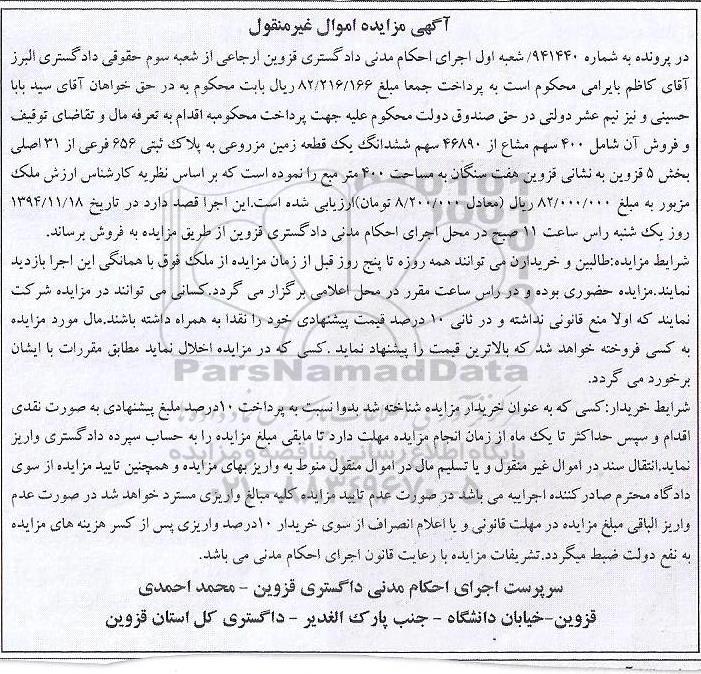 آگهی مزایده اموال غیرمنقول
در پرونده به شماره ۹۴۱۴۴۰/ شعبه اول اجرای احکام مدنی دادگستری قزوین ارجاعی از شعبه سوم حقوقی دادگستری البرز
آقای کاظم بایرامی محکوم است به پرداخت جمعا مبلغ ۸۲/۲۱۶/۱۶۶ ریال بابت محکوم به در حق خواهان آقای سید بابا
حسینی و نیز نیم عشر دولتی در حق صندوق دولت محکوم علیه جهت پرداخت محکومبه اقدام به تعرفه مال و تقاضای توقیف
و فروش آن شامل ۴۰۰ سهم مشاع از ۴۶۸۹۰ سهم ششدانگ یک قطعه زمین مزروعی به پلاک ثبتی ۶۵۶ فرعی از ۳۱ اصلی
بخش ۵ قزوین به نشانی قزوین هفت سنگان به مساحت ۴۰۰ متر مبع را نموده است که بر اساس نظریه کارشناس ارزش ملک
مزبور به مبلغ ۸۲/۰۰۰/۰۰۰ ریال (معادل ۸/۲۰۰/۰۰۰ تومان)ارزیابی شده است.این اجرا قصد دارد در تاریخ ۱۳۹۴/۱۱/۱۸
روز یک شنبه راس ساعت ۱۱ صبح در محل اجرای احکام مدنی دادگستری قزوین از طریق مزایده به فروش برساند.
شرایط مزایده:طالبین و خریدارن می توانند همه روزه تا پنج روز قبل از زمان مزایده از ملک فوق با همانگی این اجرا بازدید
نمایند.مزایده حضوری بوده و در راس ساعت مقرر در محل اعلامی برگزار می گردد.کسانی می توانند در مزایده شرکت
نمایند که اولا منع قانونی نداشته و در ثانی ۱۰ درصد قیمت پیشنهادی خود را نقدا به همراه داشته باشند.مال مورد مزایده
به کسی فروخته خواهد شد که بالاترین قیمت را پیشنهاد نماید .کسی که در مزایده اخلال نماید مطابق مقررات با ایشان
برخورد می گردد.
ParsNamadData
شرایط خریدار:کسی که به عنوان خریدار مزایده شناخته شد بدوا نسبت به پرداخت ۱۰درصد ملبغ پیشنهادی به صورت نقدی
اقدام و سپس حداکثر تا یک ماه از زمان انجام مزایده مهلت دارد تا مابقی مبلغ مزایده را به حساب سپرده دادگستری واریز
پایگاه اطلاع رسانی مناقصه و مزایده
نماید.انتقال سند در اموال غیر منقول و یا تسلیم مال در اموال منقول منوط به واریز بهای مزایده و همچنین تایید مزایده از سوی
۰۲۱-۸۸۳۴۹۶۷۰-۵
دادگاه محترم صادرکننده اجراییه می باشد در صورت عدم تایید مزایده کلیه مبالغ واریزی مسترد خواهد شد در صورت عدم
واریز الباقی مبلغ مزایده در مهلت قانونی و یا اعلام انصراف از سوی خریدار ۱۰درصد واریزی پس از کسر هزینه های مزایده
به نفع دولت ضبط میگردد.تشریفات مزایده با رعایت قانون اجرای احکام مدنی می باشد.
سرپرست اجرای احکام مدنی داگستری قزوین - محمد احمدی
قزوین-خیابان دانشگاه - جنب پارک الغدیر - داگستری کل استان قزوین